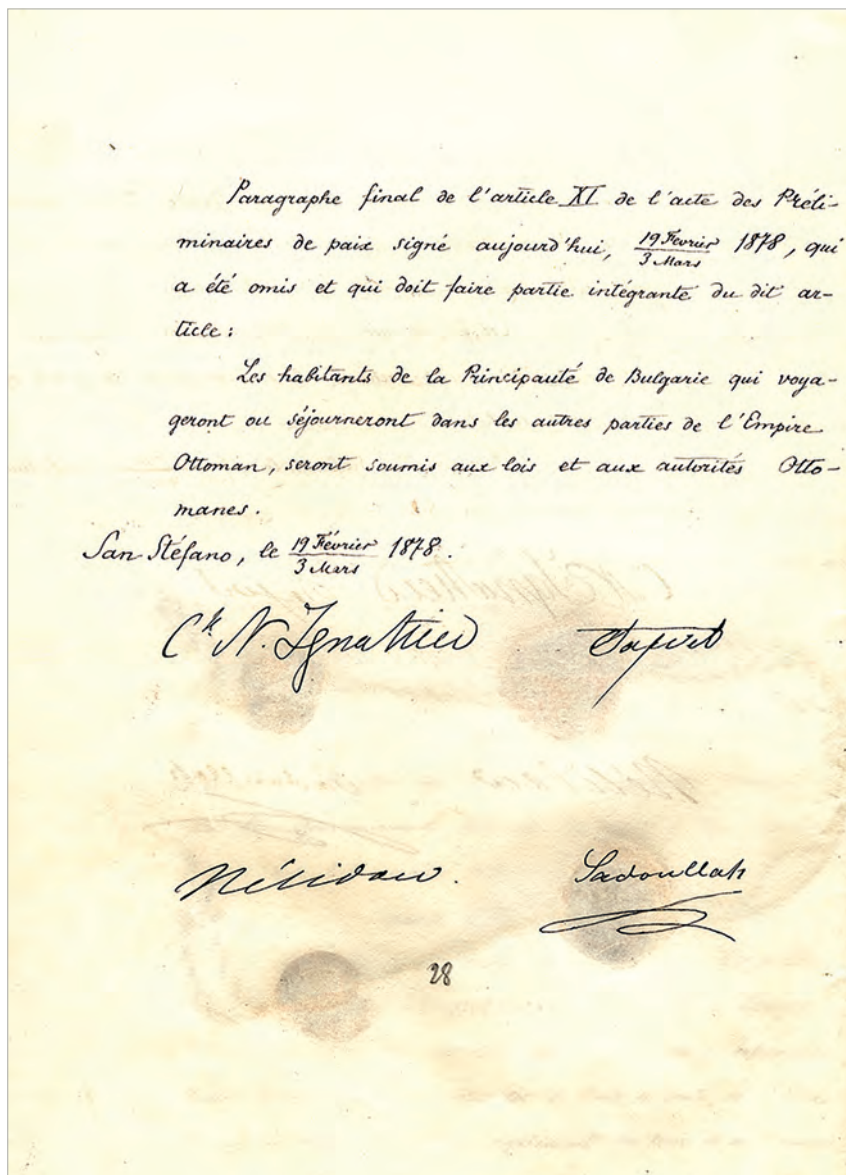 Paragraphe final de l'article XI de l'acte des Préli-
minaires de paix signé aujourd'hui, 19 Février / 3 Mars 1878, qui
a été omis et qui doit faire partie intégrante du dit ar-
ticle :
Les habitants de la Principauté de Bulgarie qui voya-
geront ou séjourneront dans les autres parties de l'Empire
Ottoman, seront soumis aux lois et aux autorités Otto-
manes.
San Stéfano, le 19 Février / 3 Mars 1878.
Cte N. Ignatiew Safvet
Nélidow. Sadoullah
28